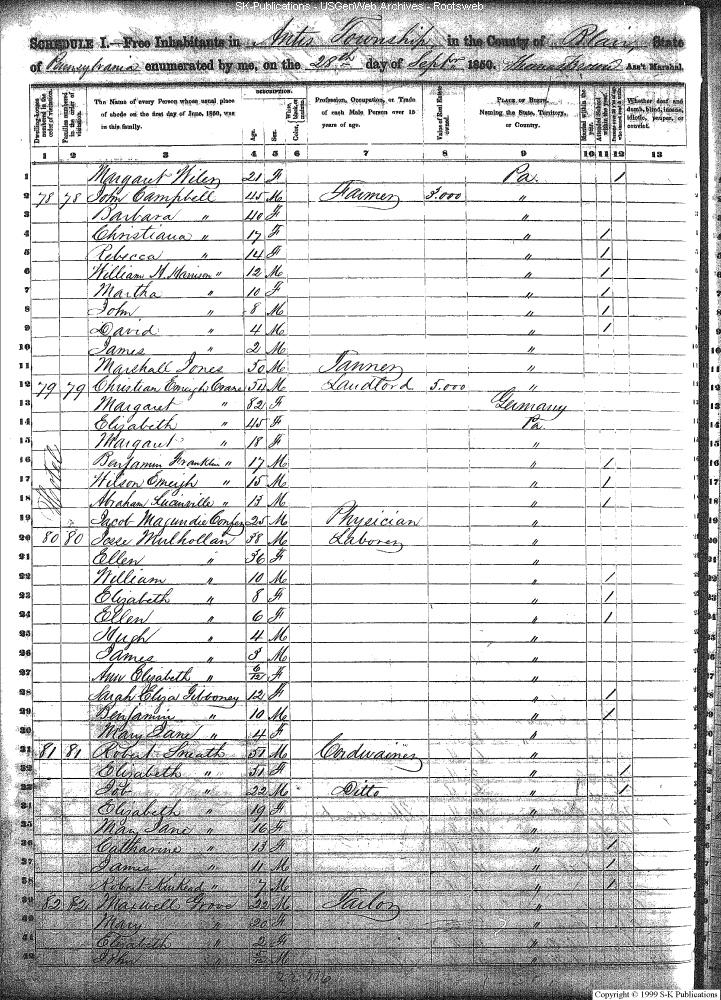 SK-Publications - USGenWeb Archives - Rootsweb
SCHEDULE I.—Free Inhabitants in Antis Township in the County of Blair State
of Pennsylvania enumerated by me, on the 28th day of Septr 1850. Ass't Marshal.
Dwelling-houses numbered in the order of visitation. Families numbered in the order of visitation. The Name of every Person whose usual place of abode on the first day of June, 1850, was in this family. DESCRIPTION. Age. Sex. White, black, or mulatto. Color, Profession, Occupation, or Trade of each Male Person over 15 years of age. Value of Real Estate owned. PLACE OF BIRTH. Naming the State, Territory, or Country. Married within the year. Attended School within the year. Whether deaf and dumb, blind, insane, idiotic, pauper, or convict.
1 2 3 4 5 6 7 8 9 10 11 12 13
1 Margaret 21 F Pa. /
2 78 78 John Campbell 45 M Farmer 3.000 "
3 Barbara " 40 F "
4 Christiana " 17 F " /
5 Rebecca " 14 F " /
6 William H. Harrison " 12 M " /
7 Martha " 10 F " /
8 John " 8 M " /
9 David " 4 M " /
10 James " 2 M "
11 Marshall Jones 50 M Tanner "
12 79 79 Christian Emeigh Crane M Landlord 5.000 "
13 Margaret " 82 F Germany
14 Elizabeth " 45 F Pa
15 Margaret " 18 F "
16 Benjamin Franklin " 17 M " /
17 Wilson Emeigh " 15 M " /
18 Abraham " 13 M " /
19 Jacob 25 M Physician "
Hotel
20 80 80 Jesse Mulhollan 38 M Laborer "
21 Ellen " 36 F "
22 William " 10 M " /
23 Elizabeth " 8 F " /
24 Ellen " 6 F " /
25 Hugh " 4 M "
26 James " 3 M "
27 Ann Elizabeth " 6/12 F "
28 Sarah Eliza Gibboney 12 F " /
29 Benjamin " 10 M " /
30 Mary Jane " 4 F "
31 81 81 Robert Smeath 51 M Cordwainer "
32 Elizabeth " 51 F " /
33 Job " 22 M Ditto " /
34 Elizabeth " 19 F "
35 Mary Jane " 16 F "
36 Catharine " 13 F " /
37 James " 11 M " /
38 Robert Kinkead " 7 M " /
39 82 82 Maxwell Grove 22 M Tailor "
40 Mary " 20 F "
41 Elizabeth " 2 F "
42 John " M "
Copyright © 1999 S-K Publications